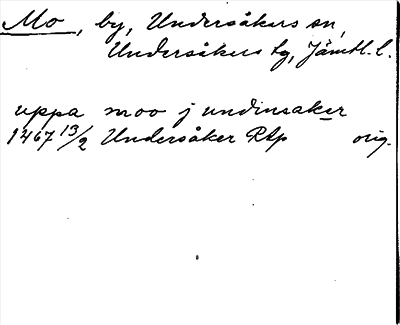 Mo, by, Undersåkers sn,
Undersåkers tg, Jämtl. l.
uppa moo j undinsaker
1467 13/2 Undersåker RAp orig.